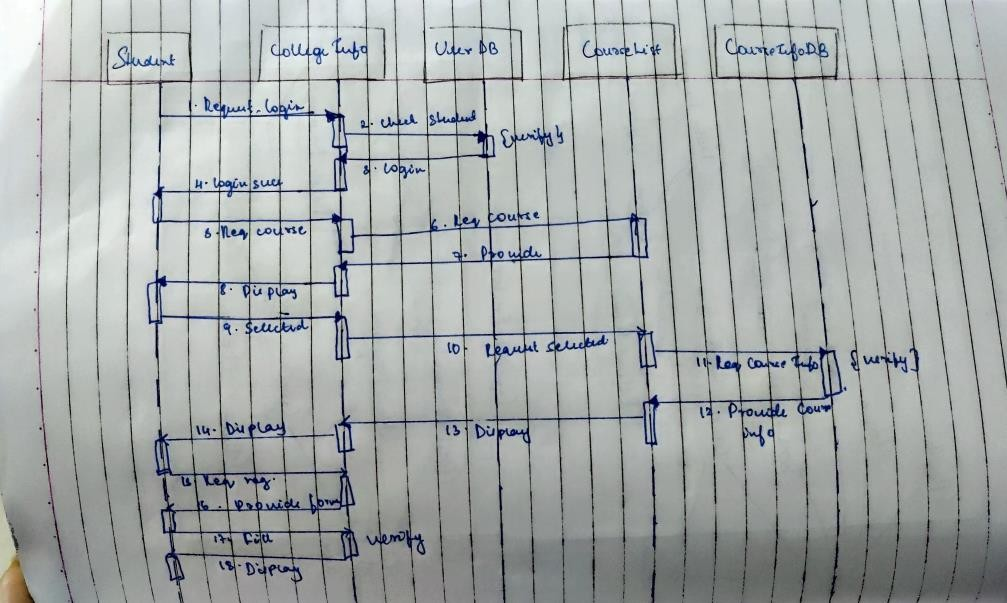 Student
College Info
User DB
Course List
Course Info DB
1. Request login
2. Check Student
{verify}
3. login
4. login succ
5. Req course
6. Req course
7. Provide
8. Display
9. Selected
10. Request selected
11. Req Course Info
{verify}
12. Provide Cour
info
13. Display
14. Display
15. Req reg.
16. Provide form
17. Fill
verify
18. Display